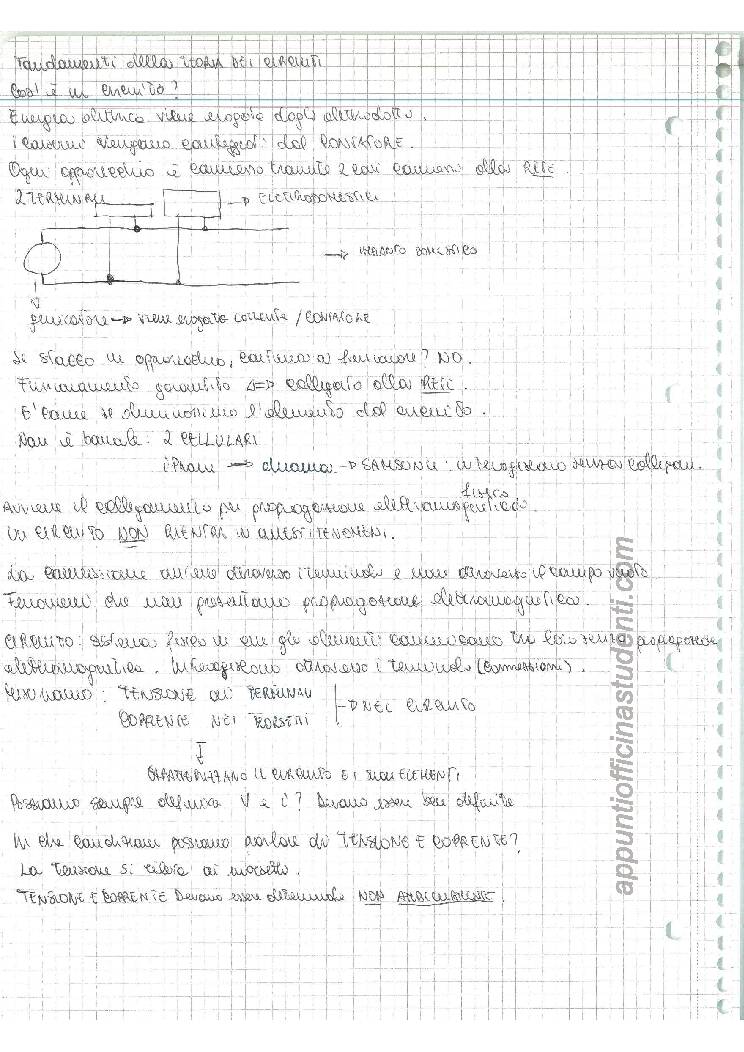 Fondamenti della TEORIA DEI CIRCUITI
Cos'è un circuito?
Energia elettrica viene erogata dagli elettrodotti.
i consumi vengono conteggiati dal CONTATORE.
Ogni apparecchio è connesso tramite 2 cavi connessi alla RETE.
2 TERMINALI → ELETTRODOMESTICI
→ IMPIANTO DOMESTICO
generatore → viene erogata corrente / CONTATORE
Se stacco un apparecchio, continua a funzionare? NO.
Funzionamento garantito <=> collegato alla RETE.
E' come se eliminassimo l'elemento dal circuito.
Non è banale: 2 CELLULARI
iPhone → chiama → SAMSUNG: interagiscono senza collegam.
fisico
Avviene il collegamento per propagazione elettromagnetica.
Un CIRCUITO NON RIENTRA IN QUESTI FENOMENI.
La connessione avviene attraverso i terminali e non attraverso il campo vuoto
Fenomeni che non presentano propagazione elettromagnetica.
CIRCUITO: sistema fisico in cui gli elementi comunicano tra loro senza propagazione
elettromagnetica. Interagiscono attraverso i terminali (connessioni).
Misuriamo: TENSIONE ai TERMINALI
→ NEL CIRCUITO
CORRENTE NEI MORSETTI
CARATTERIZZANO IL CIRCUITO E I SUOI ELEMENTI
Possiamo sempre definire V e i? Devono essere ben definite
In che condizioni possiamo parlare di TENSIONE E CORRENTE?
La tensione si rileva ai morsetti.
TENSIONE E CORRENTE Devono essere determinate NON AMBIGUAMENTE.
appuntiofficinastudenti.com